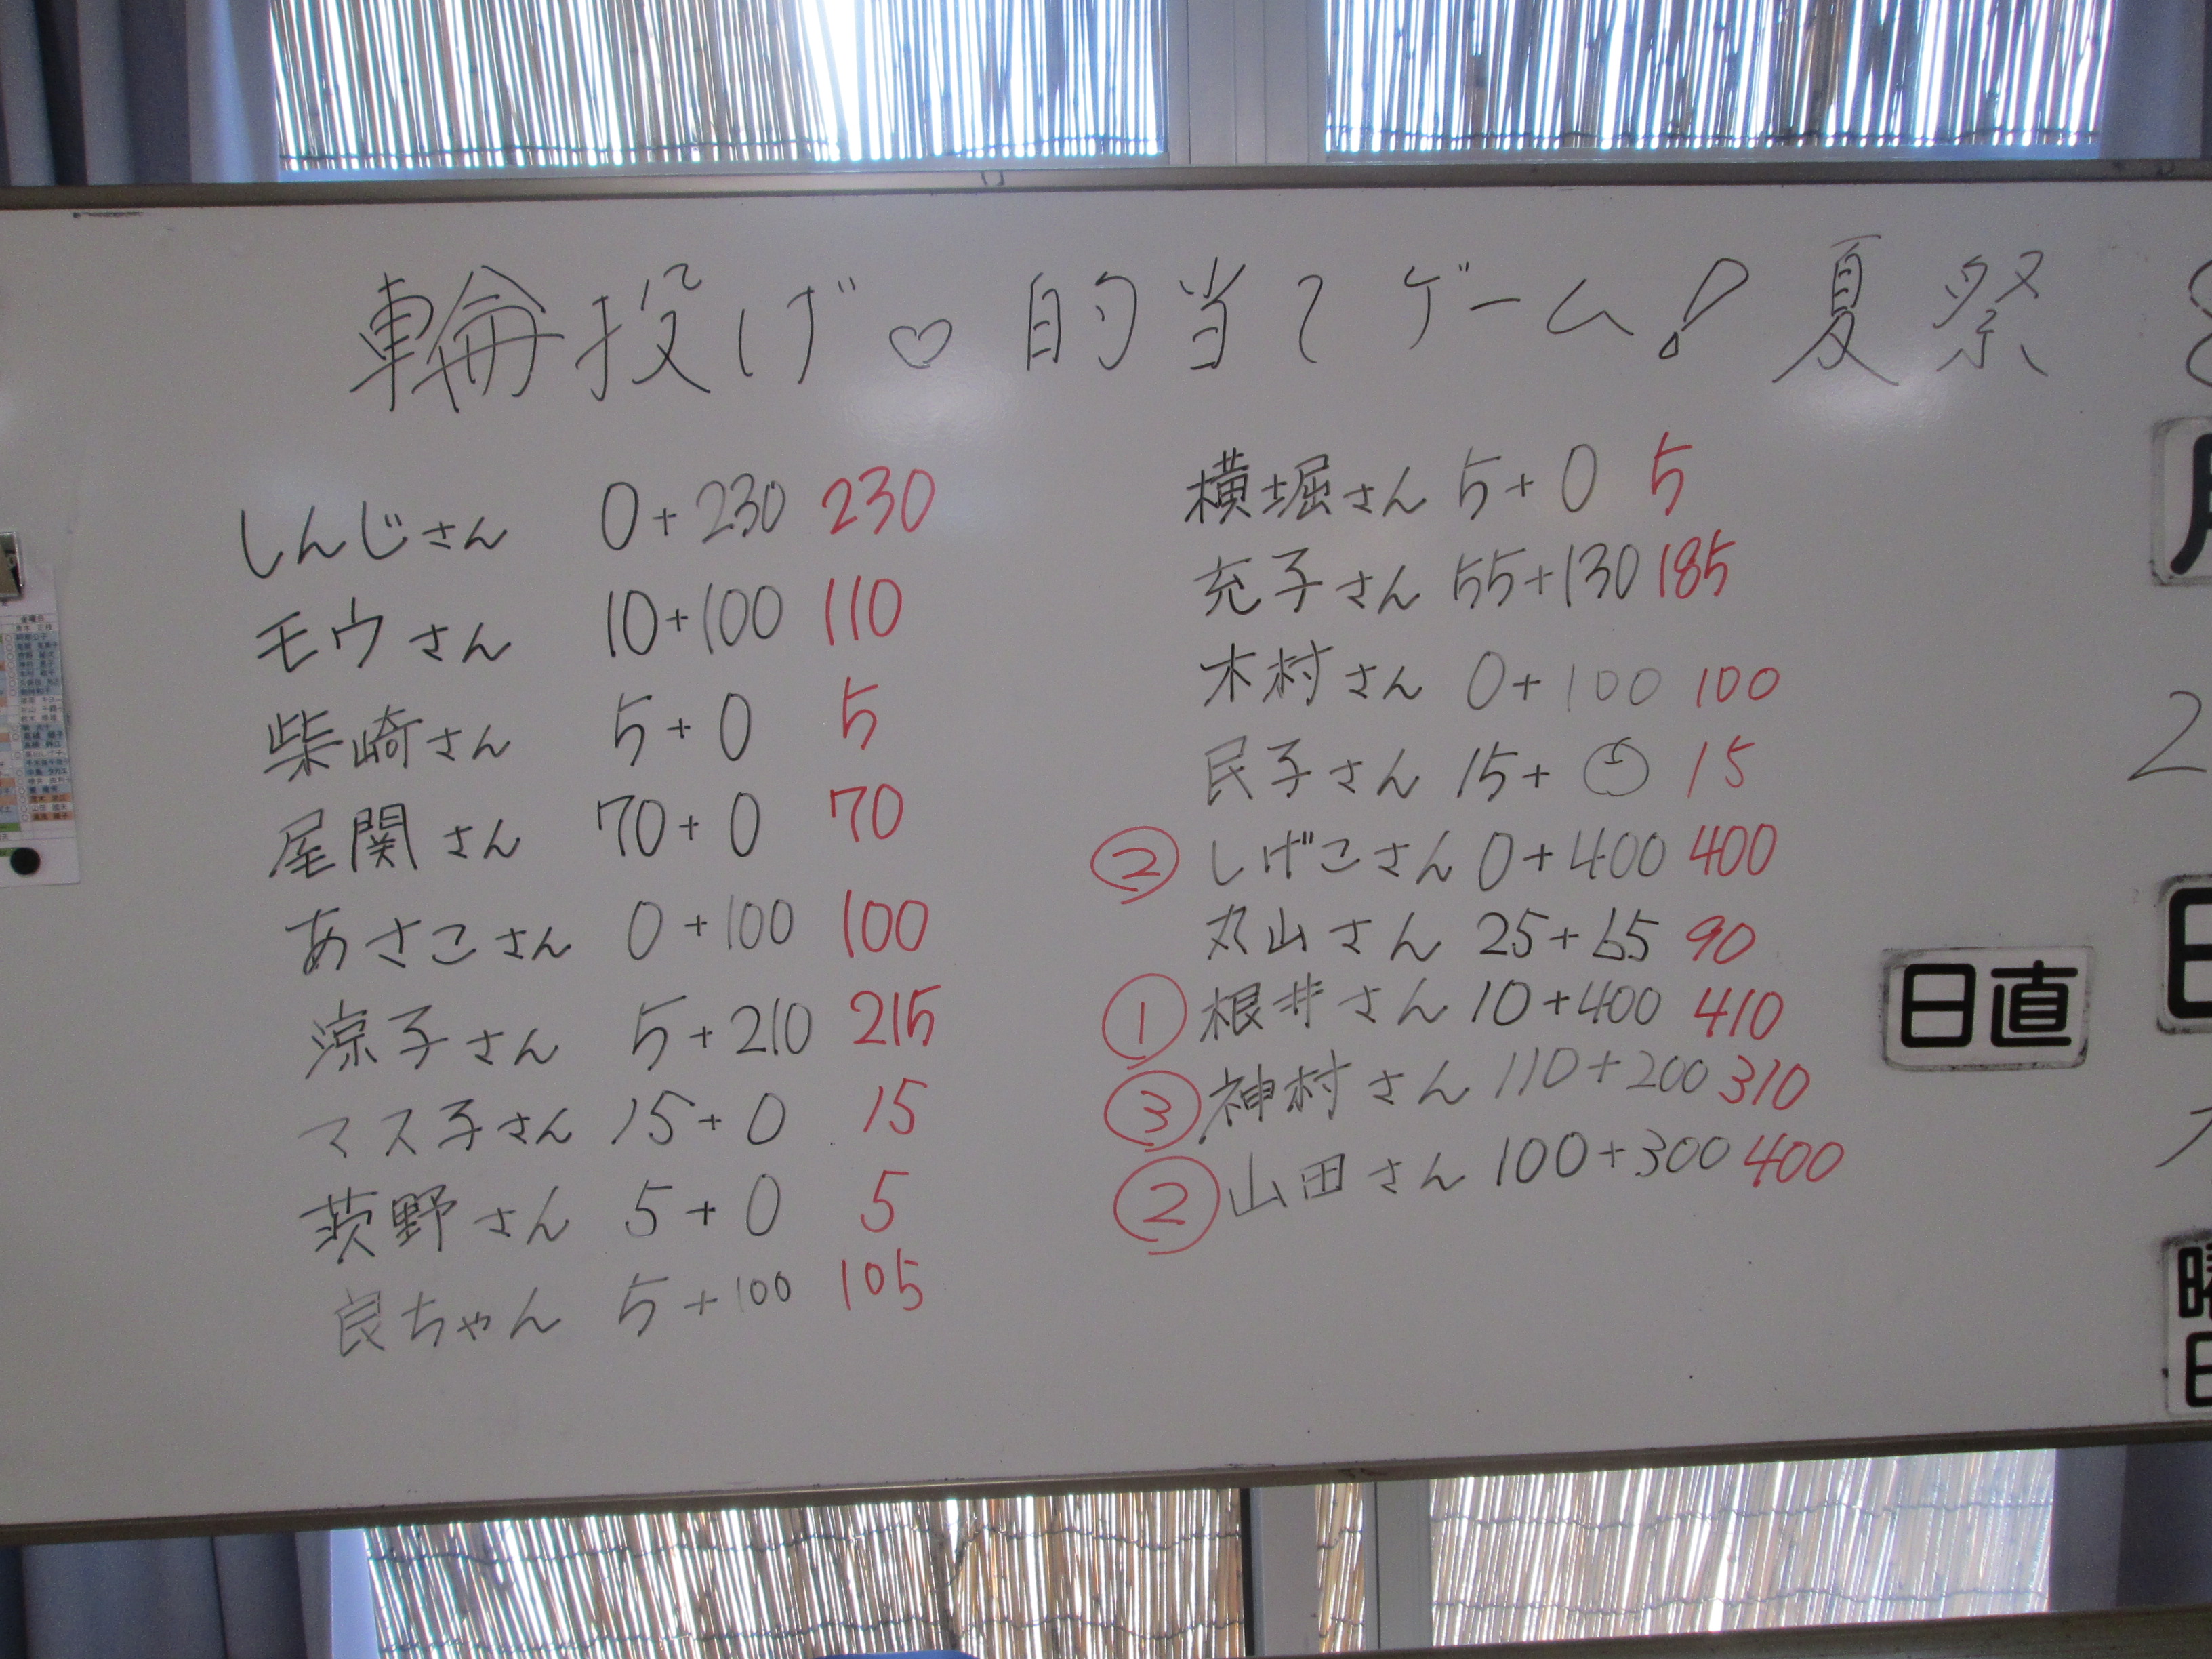 輪投げ♡的当てゲーム!夏祭
しんじさん 0+230 230
モウさん 10+100 110
柴崎さん 5+0 5
尾関さん 70+0 70
あさこさん 0+100 100
涼子さん 5+210 215
マス子さん 15+0 15
荻野さん 5+0 5
良ちゃん 5+100 105
横堀さん 5+0 5
充子さん 55+130 185
木村さん 0+100 100
民子さん 15+0 15
② しげこさん 0+400 400
丸山さん 25+65 90
① 根井さん 10+400 410
③ 神村さん 110+200 310
② 山田さん 100+300 400
日直
2
日
曜日
金曜日